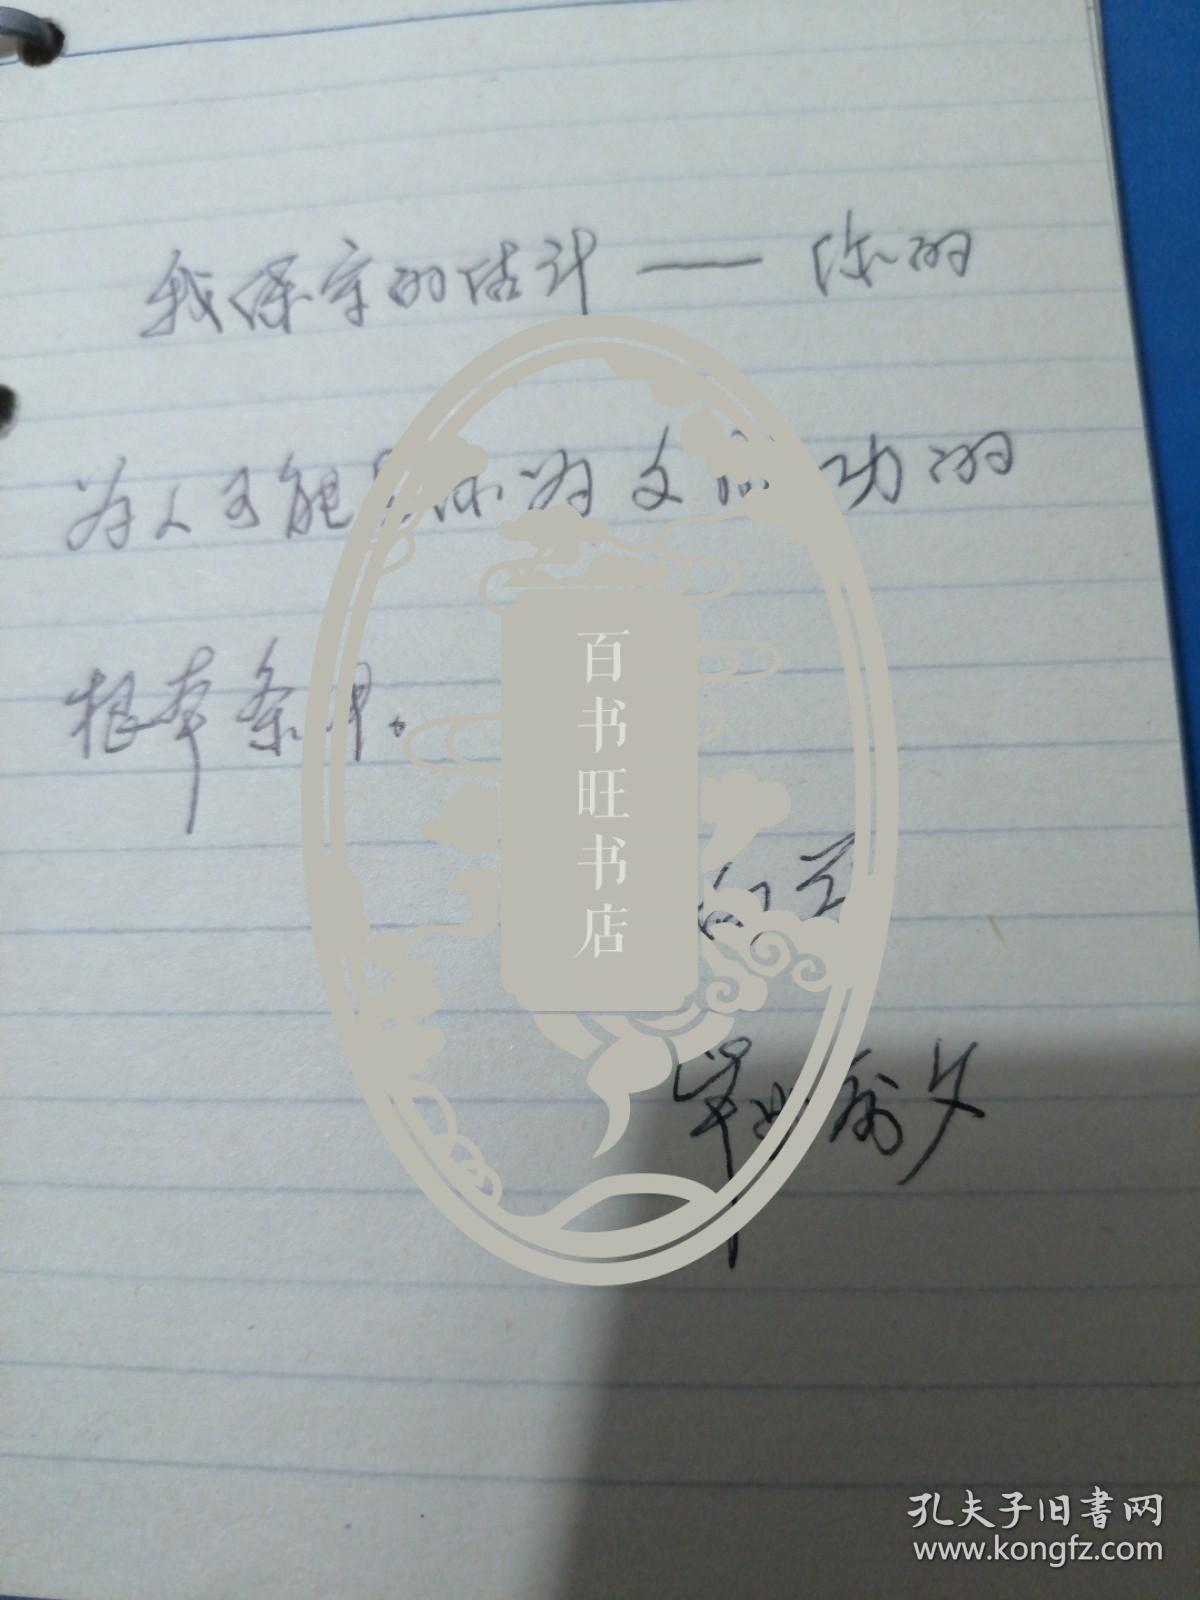 我保守的估计——你的
为人可能是你为文成功的
根本条件。
毕业前夕
百书旺书店
孔夫子旧书网
www.kongfz.com